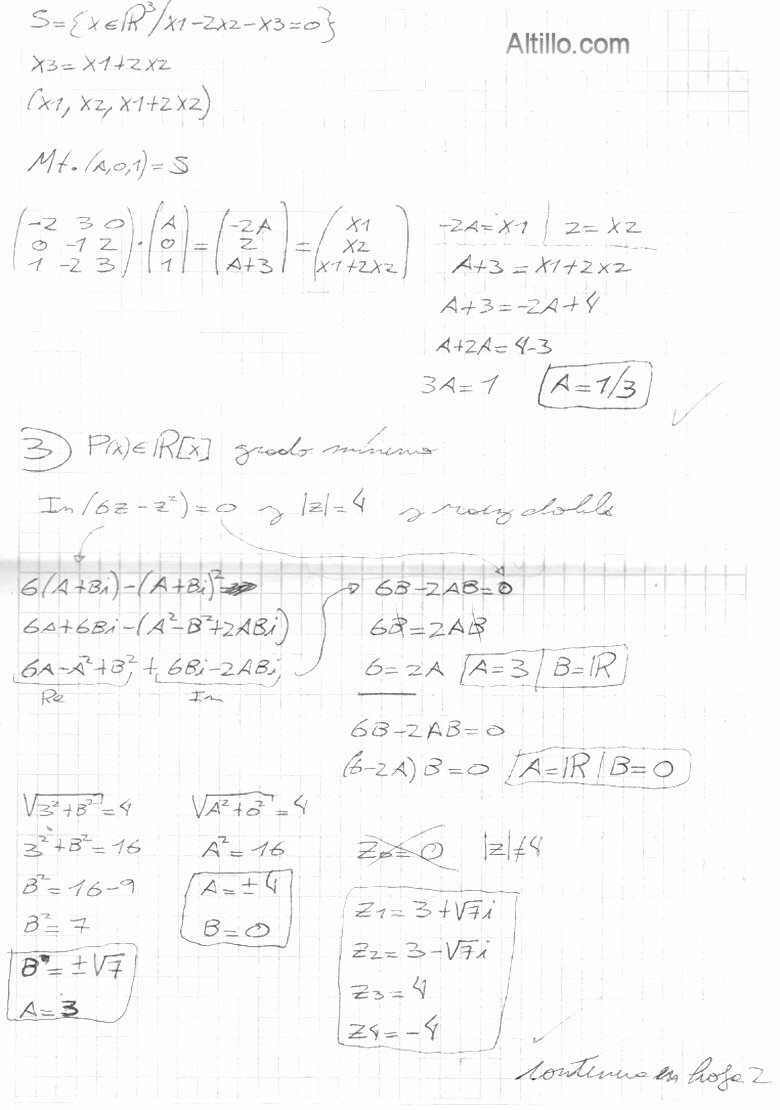 S={x∈ℝ³/x1-2x2-x3=0}
Altillo.com
x3=x1+2x2
(x1, x2, x1+2x2)
Mt.(A,0,1)=S
(-2 3 0
0 -1 2
1 -2 3) · (A
0
1) = (-2A
2
A+3) = (x1
x2
x1+2x2)
-2A=x1 | 2=x2
A+3=x1+2x2
A+3=-2A+4
A+2A=4-3
3A=1 A=1/3
3) P(x)∈ℝ[x] grado mínimo
Im(6z-z²)=0 y |z|=4 y raiz doble
6(A+Bi)-(A+Bi)²=
6A+6Bi-(A²-B²+2ABi)
6A-A²+B²+6Bi-2ABi
Re Im
6B-2AB=0
6B=2AB
6=2A A=3 | B=ℝ
6B-2AB=0
(6-2A)B=0 A=ℝ | B=0
√3²+B²=4
3²+B²=16
B²=16-9
B²=7
B=±√7
A=3
√A²+0²=4
A²=16
A=±4
B=0
Z0=0 |z|≠4
Z1=3+√7i
Z2=3-√7i
Z3=4
Z4=-4
continua en hoja 2